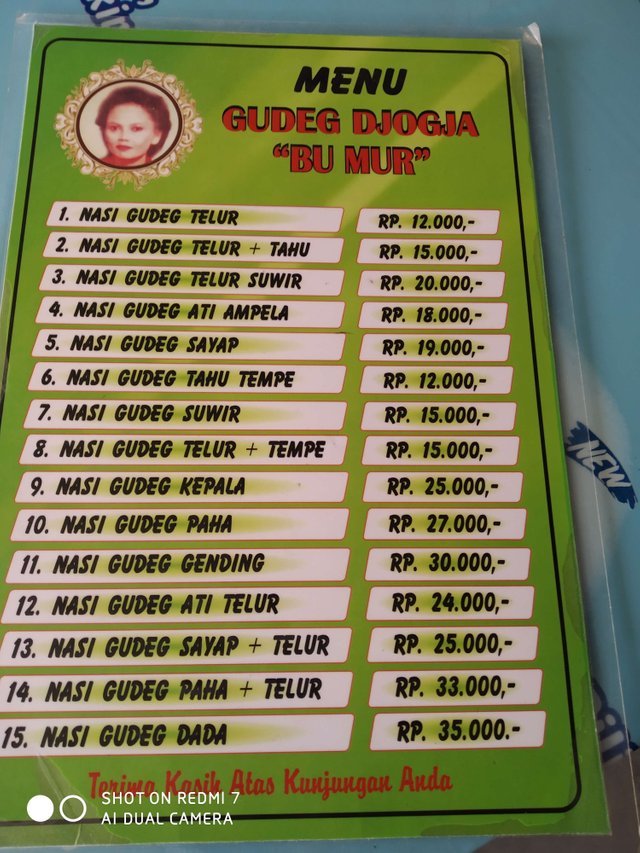 MENU
GUDEG DJOGJA
"BU MUR"
1. NASI GUDEG TELUR RP. 12.000,-
2. NASI GUDEG TELUR + TAHU RP. 15.000,-
3. NASI GUDEG TELUR SUWIR RP. 20.000,-
4. NASI GUDEG ATI AMPELA RP. 18.000,-
5. NASI GUDEG SAYAP RP. 19.000,-
6. NASI GUDEG TAHU TEMPE RP. 12.000,-
7. NASI GUDEG SUWIR RP. 15.000,-
8. NASI GUDEG TELUR + TEMPE RP. 15.000,-
9. NASI GUDEG KEPALA RP. 25.000,-
10. NASI GUDEG PAHA RP. 27.000,-
11. NASI GUDEG GENDING RP. 30.000,-
12. NASI GUDEG ATI TELUR RP. 24.000,-
13. NASI GUDEG SAYAP + TELUR RP. 25.000,-
14. NASI GUDEG PAHA + TELUR RP. 33.000,-
15. NASI GUDEG DADA RP. 35.000.-
Terima Kasih Atas Kunjungan Anda
NEW
SHOT ON REDMI 7
AI DUAL CAMERA